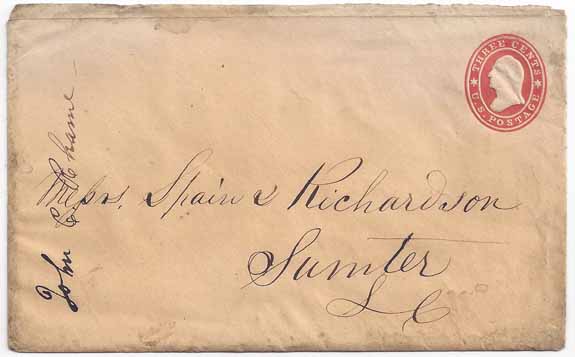 THREE CENTS
U.S. POSTAGE
Messrs. Spain & Richardson
Sumter
S C
John C. Chame